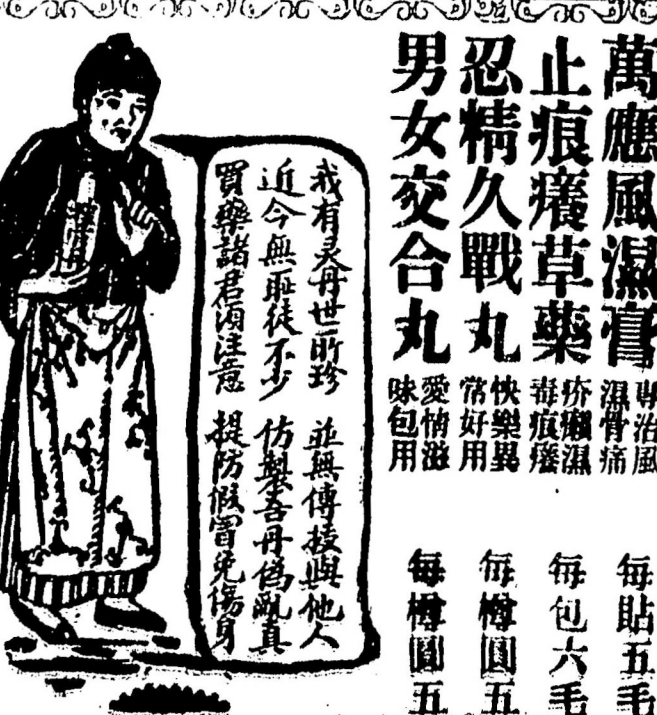 萬應風濕膏
專治風
濕骨痛
每貼五毛
止痕癢草藥
疥癩濕
毒痕癢
每包六毛
忍精久戰丸
快樂異
常好用
每樽圓五
男女交合丸
愛情滋
味包用
每樽圓五
我有灵丹世所珍 並無傳授與他人
近今無恥徒不少 仿製吾丹偽亂真
買藥諸君須注意 提防假冒免傷身